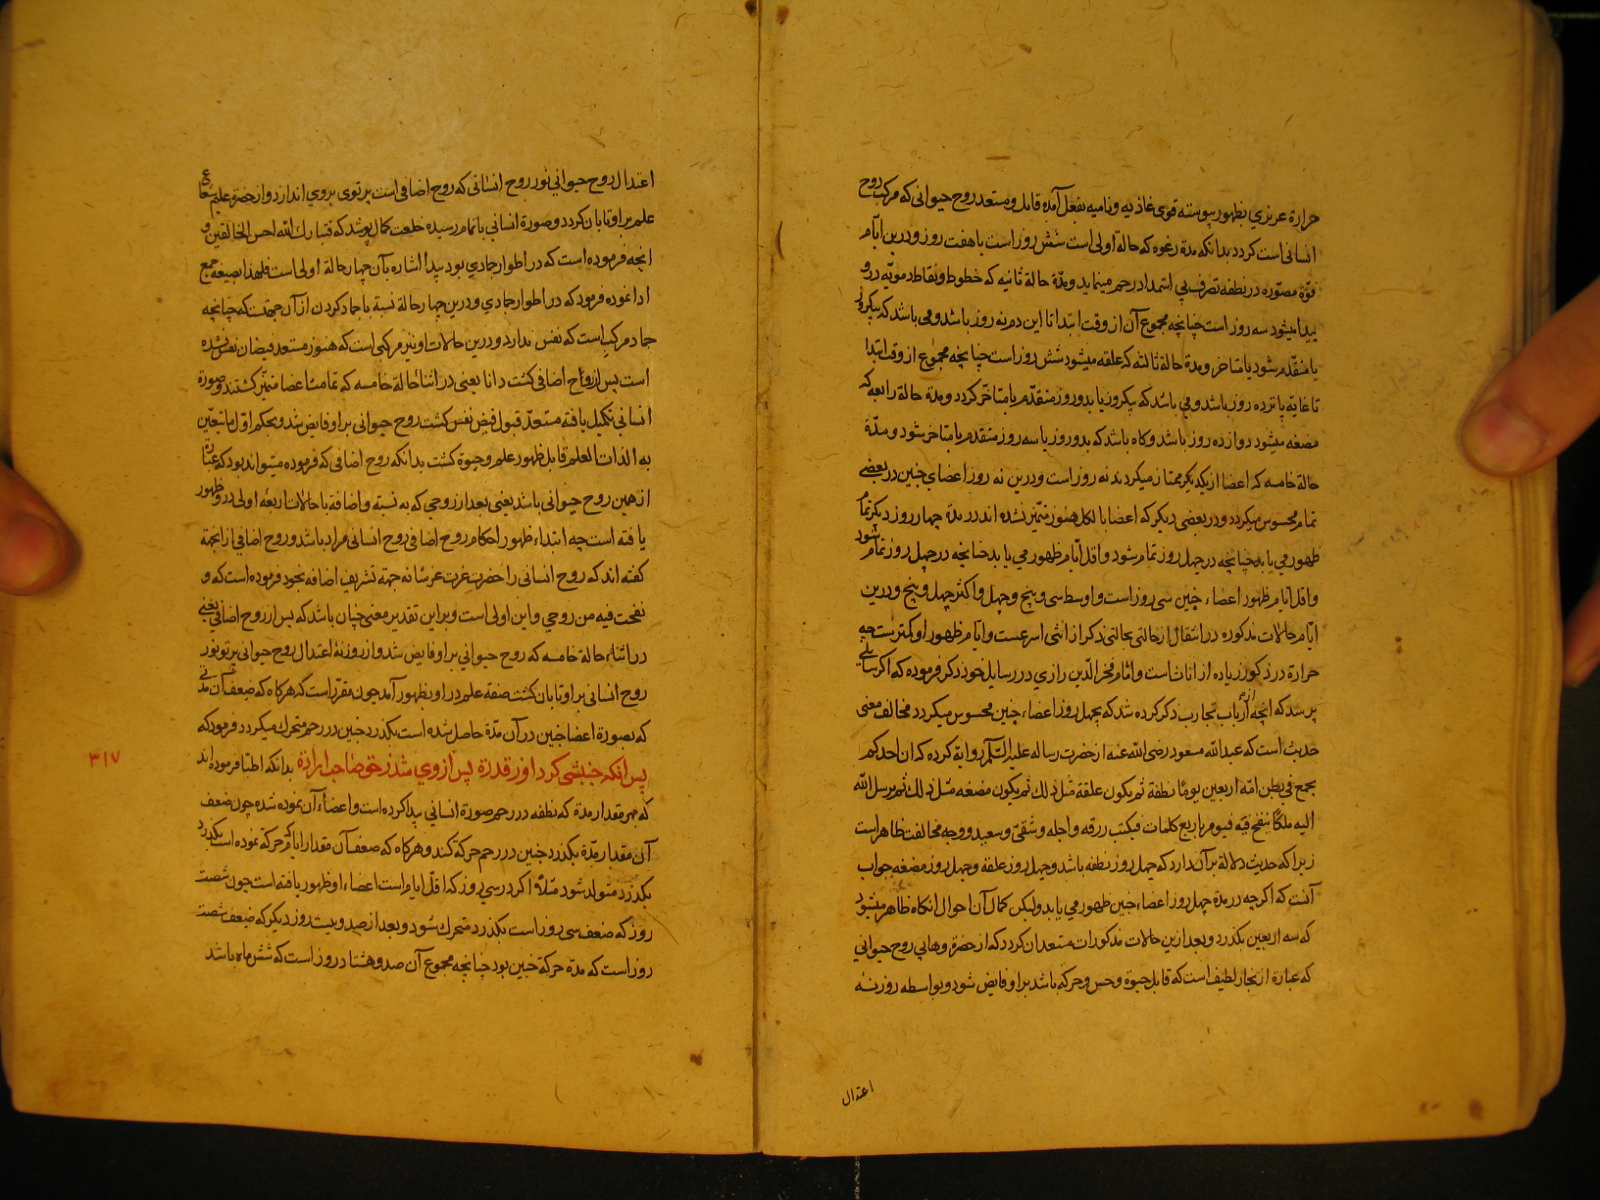 حرارة غريزي بظهور پيوسته قوى غاذيه و ناميه بفعل آمده قابل و مستعد روح حيوانى كه مركب روح
انسانى است كردد بدانكه مدة رغوه كه حالة اولى است شش روز است يا هفت روز و درين ايام
قوّة مصوّره در نطفه تصرف بى استمداد رحم مينمايد و مدّة حالة ثانيه كه خطوط و نقاط دمويّه درو
پيدا ميشود سه روز است چنانچه مجموع آن از وقت ابتدا تا اين دم نه روز باشد و مى باشد كه بيكروز
يا متقدّم شود يا متاخر و مدة حالة ثالثه كه علقه ميشود شش روز است چنانچه مجموع از وقت ابتدا
تا غايه پانزده روز باشد و مى باشد كه بيكروز يا بدو روز متقدّم يا متاخّر كردد و مدة حالة رابعه كه
مضغه ميشود دوازده روز باشد و كاه باشد كه بدو روز يا سه روز متقدم يا متاخر شود و مدّة
حالة خامسه كه اعضا از يكديكر ممتاز ميكردند نه روز است و درين نه روز اعضاي جنين در بعضى
تمام محسوس ميكردد و در بعضى ديكر كه اعضا بالكل هنوز متميّز نشده اند در مدة چهار روز ديكر تمام
ظهور مي يابد چنانچه در چهل روز تمام شود و اقل ايّام ظهور مي يابد چنانچه در چهل روز تمام شود
و اقل ايام ظهور اعضاء جنين سى روز است و اوسط سى و پنج و چهل و اكثر چهل و پنج و درين
ايّام حالات مذكوره در انتقال از حالتى بحالتى ذكر از انثى اسرعست و ايّام ظهور او كمترست چه
حرارة در ذكور زياده از اناث است و امام فخر الدّين رازي در رسايل خود ذكر فرموده كه اكر سايلى
پرسد كه انچه از ارباب تجارب ذكر كرده شد كه بچهل روز اعضاء جنين محسوس ميكردد مخالف معنى
حديث است كه عبد الله مسعود رضى الله عنه از حضرت رساله عليه السّلم رواية كرده كه ان احدكم
يجمع فى بطن امّه اربعين يومًا نطفة ثم يكون علقة مثل ذلك ثم يكون مضغه مثل ذلك ثم يرسل الله
اليه ملكًا ينفخ فيه فيومر باربع كلمات فيكتب رزقه و اجله و شقىّ و سعيد و وجه مخالفت ظاهر است
زيرا كه حديث دلالة بر آن دارد كه چهل روز نطفه باشد و چهل روز علقه و چهل روز مضغه جواب
آنست كه اكر چه در مدة چهل روز اعضاء جنين ظهور مي يابد وليكن كمال آن احوال انكاه ظاهر ميشود
كه سه اربعين بكذرد و بعد ازين حالات مذكورات مستعد ان كردد كه از حضرة وهابي روح حيوانى
كه عبارة از بخار لطيف است كه قابل حيوة و حس و حركه باشد بر او فايض شود و بواسطه روزنه
اعتدال
اعتدال روح حيوانى نور روح انسانى كه روح اضافى است پرتوى بروى اندازد و از حضرة عليم شعاع
علم بر او تابان كردد و صورة انسانى باتمام رسيده خلعت كمال پوشد كه فتبارك الله احسن الخالقين و
انچه فرموده است كه در اطوار جمادي بود پيدا اشاره بآن چهار حالة اولى است فلهذا بصيغه جمع
ادا نموده فرمود كه در اطوار جمادي و درين چهار حالة نسبة با جماد كردن از آن جهتست كه چنانچه
جماد مركب است كه نفس ندارد و درين حالات او نيز مركبى است كه هنوز مستعد فيضان نفس نشده
است پس از روح اضافى كشت دانا يعنى در اثناء حالة خامسه كه تمامت اعضا متميّز كشتند و صورة
انسانى تكميل يافته مستعدّ قبول فيض نفس كشت روح حيوانى بر او فايض شد و بحكم اوّل ما تتعيّن
به الذات العلم قابل ظهور علم و حيوة كشت بدانكه روح اضافى كه فرموده ميتواند بود كه عبارة
از همين روح حيوانى باشد يعنى بعد از روحي كه به نسبة و اضافه با حالات اربعه اولى درو ظهور
يافته است چه ابتداء ظهور احكام روح اضافى روح انسانى مراد باشد و روح اضافى از انجهة
كفته اند كه روح انسانى را حضرت عزت عز شانه جهة تشريف اضافه بخود فرموده است كه و
نفخت فيه من روحي و اين اولى است و بر اين تقدير معنى چنان باشد كه پس از روح اضافى يعنى
در اثناء حالة خامسه كه روح حيوانى بر او فايض شد و از روزنۀ اعتدال روح حيوانى پرتو نور
روح انسانى بر او تابان كشت صفة علم در او بظهور آمد چون مقرّر است كه هركاه كه ضعف آن مدّتى
كه بصورة اعضا جنين در آن مدّة حاصل شده است بكذرد جنين در رحم متحرك ميكردد فرمود كه
پس آنكه جنبشى كرد او ز قدرة پس از وي شد ز حق صاحب ارادة بدانكه اطبا فرموده اند
٣١٧
كه بهر مقدار مدة كه نطفه در رحم صورة انساني پيدا كرده است و اعضاء آن نموده شده چون ضعف
آن مقدار مدّة بكذرد جنين در رحم حركة كند و هركاه كه ضعف آن مقدار ايام كه حركة نموده است بكذرد
بكذرد متولد شود مثلًا اكر در سي روز كه اقلّ ايام است اعضاء او ظهور يافته است چون شصت
روز كه ضعف سى روز است بكذرد متحرك شود و بعد از صد و بيست روز ديكر كه ضعف شصت
روز است كه مدة حركة جنين بود چنانچه مجموع آن صد و هشتاد روز است كه شش ماه باشد